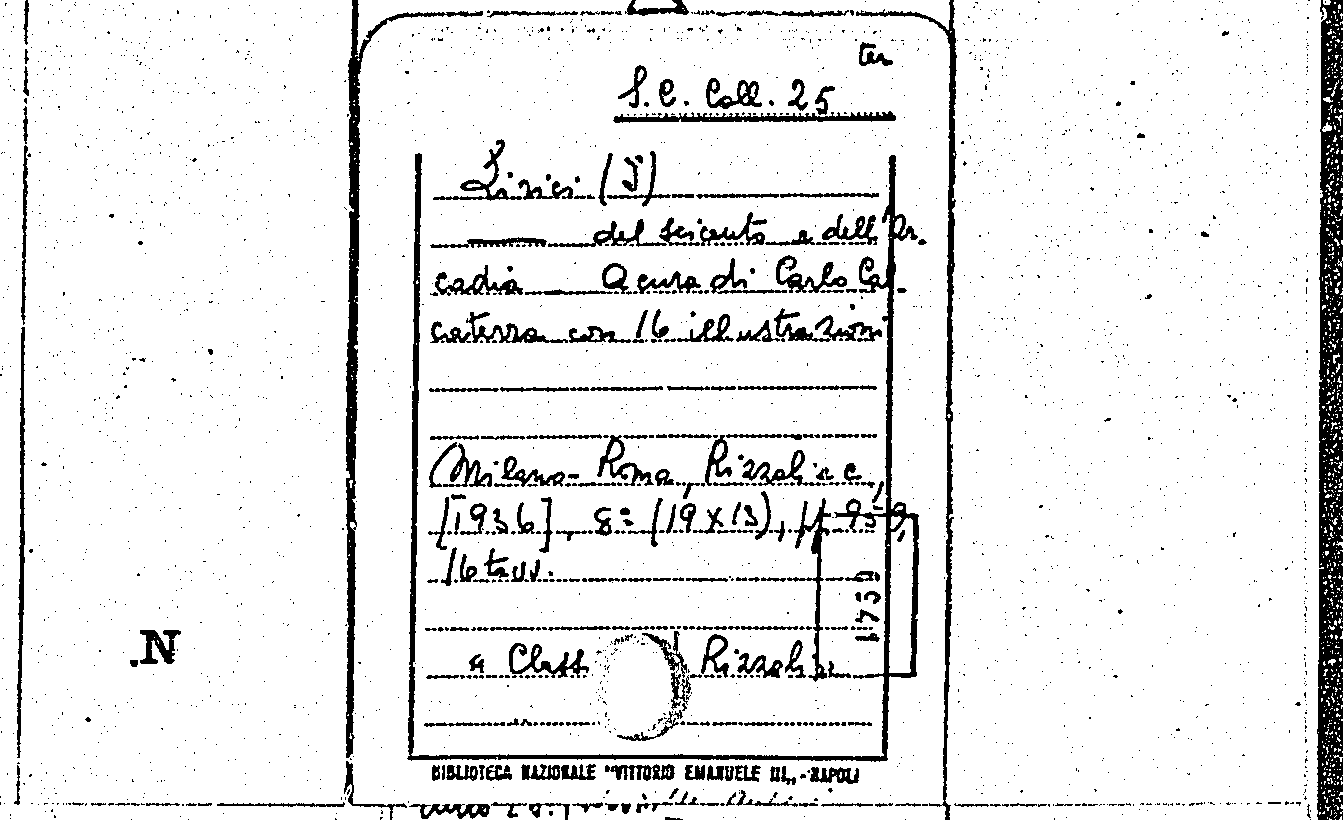 ter
S.C. Coll. 25
Lirici (I)
—— del seicento e dell'Ar-
cadia _ A cura di Carlo Cal-
caterra con 16 illustrazioni
Milano-Roma, Rizzoli e C.,
[1936], 8º (19 x 13),
16 tavv.
1759
.N
« Class Rizzoli »
BIBLIOTECA NAZIONALE "VITTORIO EMANUELE III„ - NAPOLI